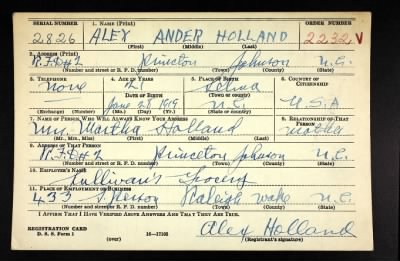 SERIAL NUMBER 1. NAME (Print) ORDER NUMBER
2826 ALEX ANDER HOLLAND 2232 V
(First) (Middle) (Last)
2. ADDRESS (Print)
R.F.D.#2 Princeton Johnson N.C.
(Number and street or R. F. D. number) (Town) (County) (State)
3. TELEPHONE 4. AGE IN YEARS 5. PLACE OF BIRTH 6. COUNTRY OF CITIZENSHIP
None 21 Selma
DATE OF BIRTH (Town or county)
June 28 1919 N.C. U.S.A
(Mo.) (Day) (Yr.) (State or country)
7. NAME OF PERSON WHO WILL ALWAYS KNOW YOUR ADDRESS 8. RELATIONSHIP OF THAT PERSON
Mrs. Martha Holland mother
(Mr., Mrs., Miss) (First) (Middle) (Last)
9. ADDRESS OF THAT PERSON
R.F.D.#2 Princeton Johnson N.C.
(Number and street or R. F. D. number) (Town) (County) (State)
10. EMPLOYER'S NAME
Sullivan's Grocery
11. PLACE OF EMPLOYMENT OR BUSINESS
433 S. Person Raleigh Wake N.C.
(Number and street or R. F. D. number) (Town) (County) (State)
I AFFIRM THAT I HAVE VERIFIED ABOVE ANSWERS AND THAT THEY ARE TRUE.
REGISTRATION CARD
D. S. S. Form 1 (over) 16-17105 Alex Holland
(Registrant's signature)